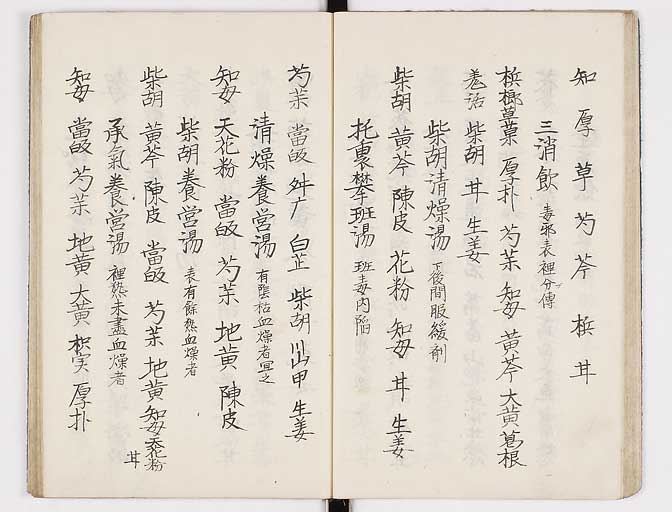 知厚草芍芩梹甘
三消飲 毒邪表裡分傳
梹榔草菓厚朴芍薬知母黄芩大黄葛根
羌活柴胡甘生姜
柴胡清燥湯 下後間服緩剤
柴胡黄芩陳皮花粉知母甘生姜
托裏擧斑湯 斑毒内陥
芍薬當皈舛广白芷柴胡山甲生姜
清燥養営湯 有陰枯血燥者宜之
知母天花粉當皈芍薬地黄陳皮
柴胡養営湯 表有餘熱血燥者
柴胡黄芩陳皮當皈芍薬地黄知母天花粉
甘
承氣養営湯 裡熱未盡血燥者
知母當皈芍薬地黄大黄枳実厚朴